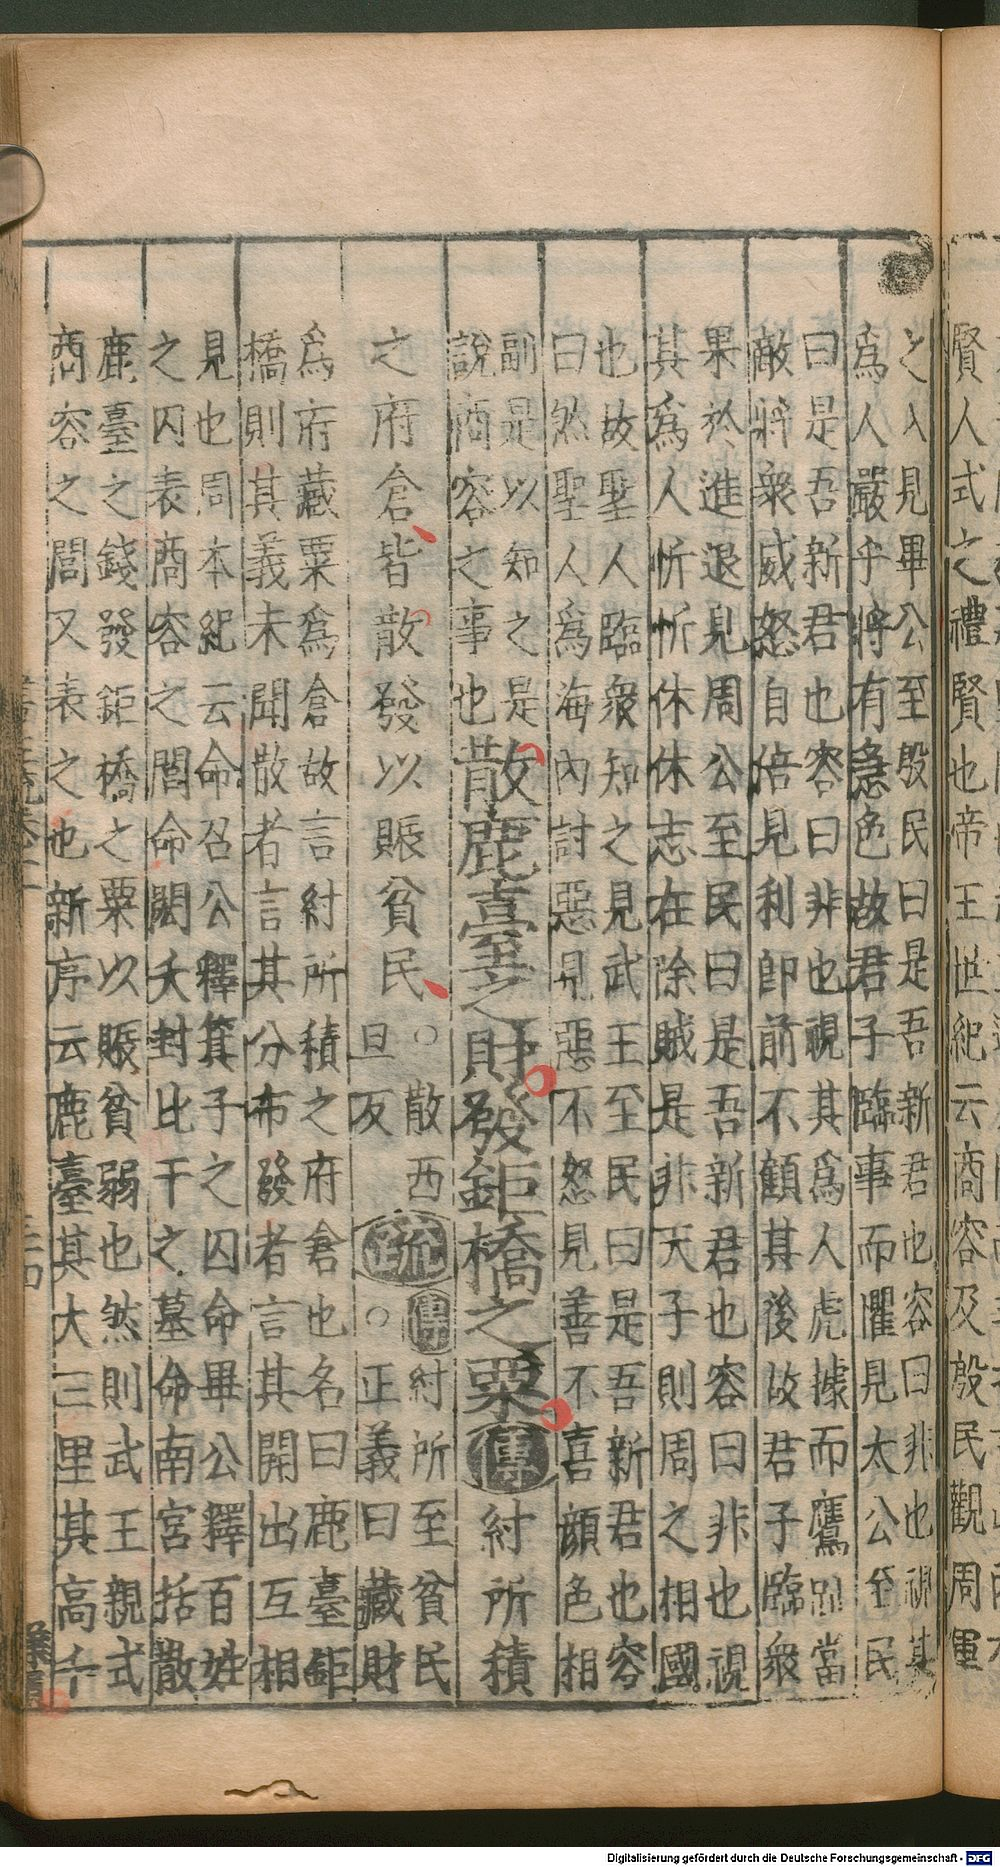 賢人式之禮賢也帝王世紀云商容及殷民觀周軍
之入見畢公至殷民曰是吾新君也容曰非也視其
爲人嚴乎將有急色故君子臨事而懼見太公至民
曰是吾新君也容曰非也視其爲人虎據而鷹趾當
敵將衆威怒自倍見利即前不顧其後故君子臨衆
果於進退見周公至民曰是吾新君也容曰非也視
其爲人忻忻休休志在除賊是非天子則周之相國
也故聖人臨衆知之見武王至民曰是吾新君也容
曰然聖人爲海內討惡見惡不怒見善不喜顔色相
副是以知之是
說商容之事也
散鹿臺之財發鉅橋之粟
傳
紂所積
之府倉皆散發以賑貧民
○散西
旦反
傳
紂所至貧民
疏
○正義曰藏財
爲府藏粟爲倉故言紂所積之府倉也名曰鹿臺鉅
橋則其義未聞散者言其分布發者言其開出互相
見也周本紀云命召公釋箕子之囚命畢公釋百姓
之囚表商容之閭命閎夭封比干之墓命南宮括散
鹿臺之錢發鉅橋之粟以賑貧弱也然則武王親式
商容之閭又表之也新序云鹿臺其大三里其高千
Digitalisierung gefördert durch die Deutsche Forschungsgemeinschaft - DFG